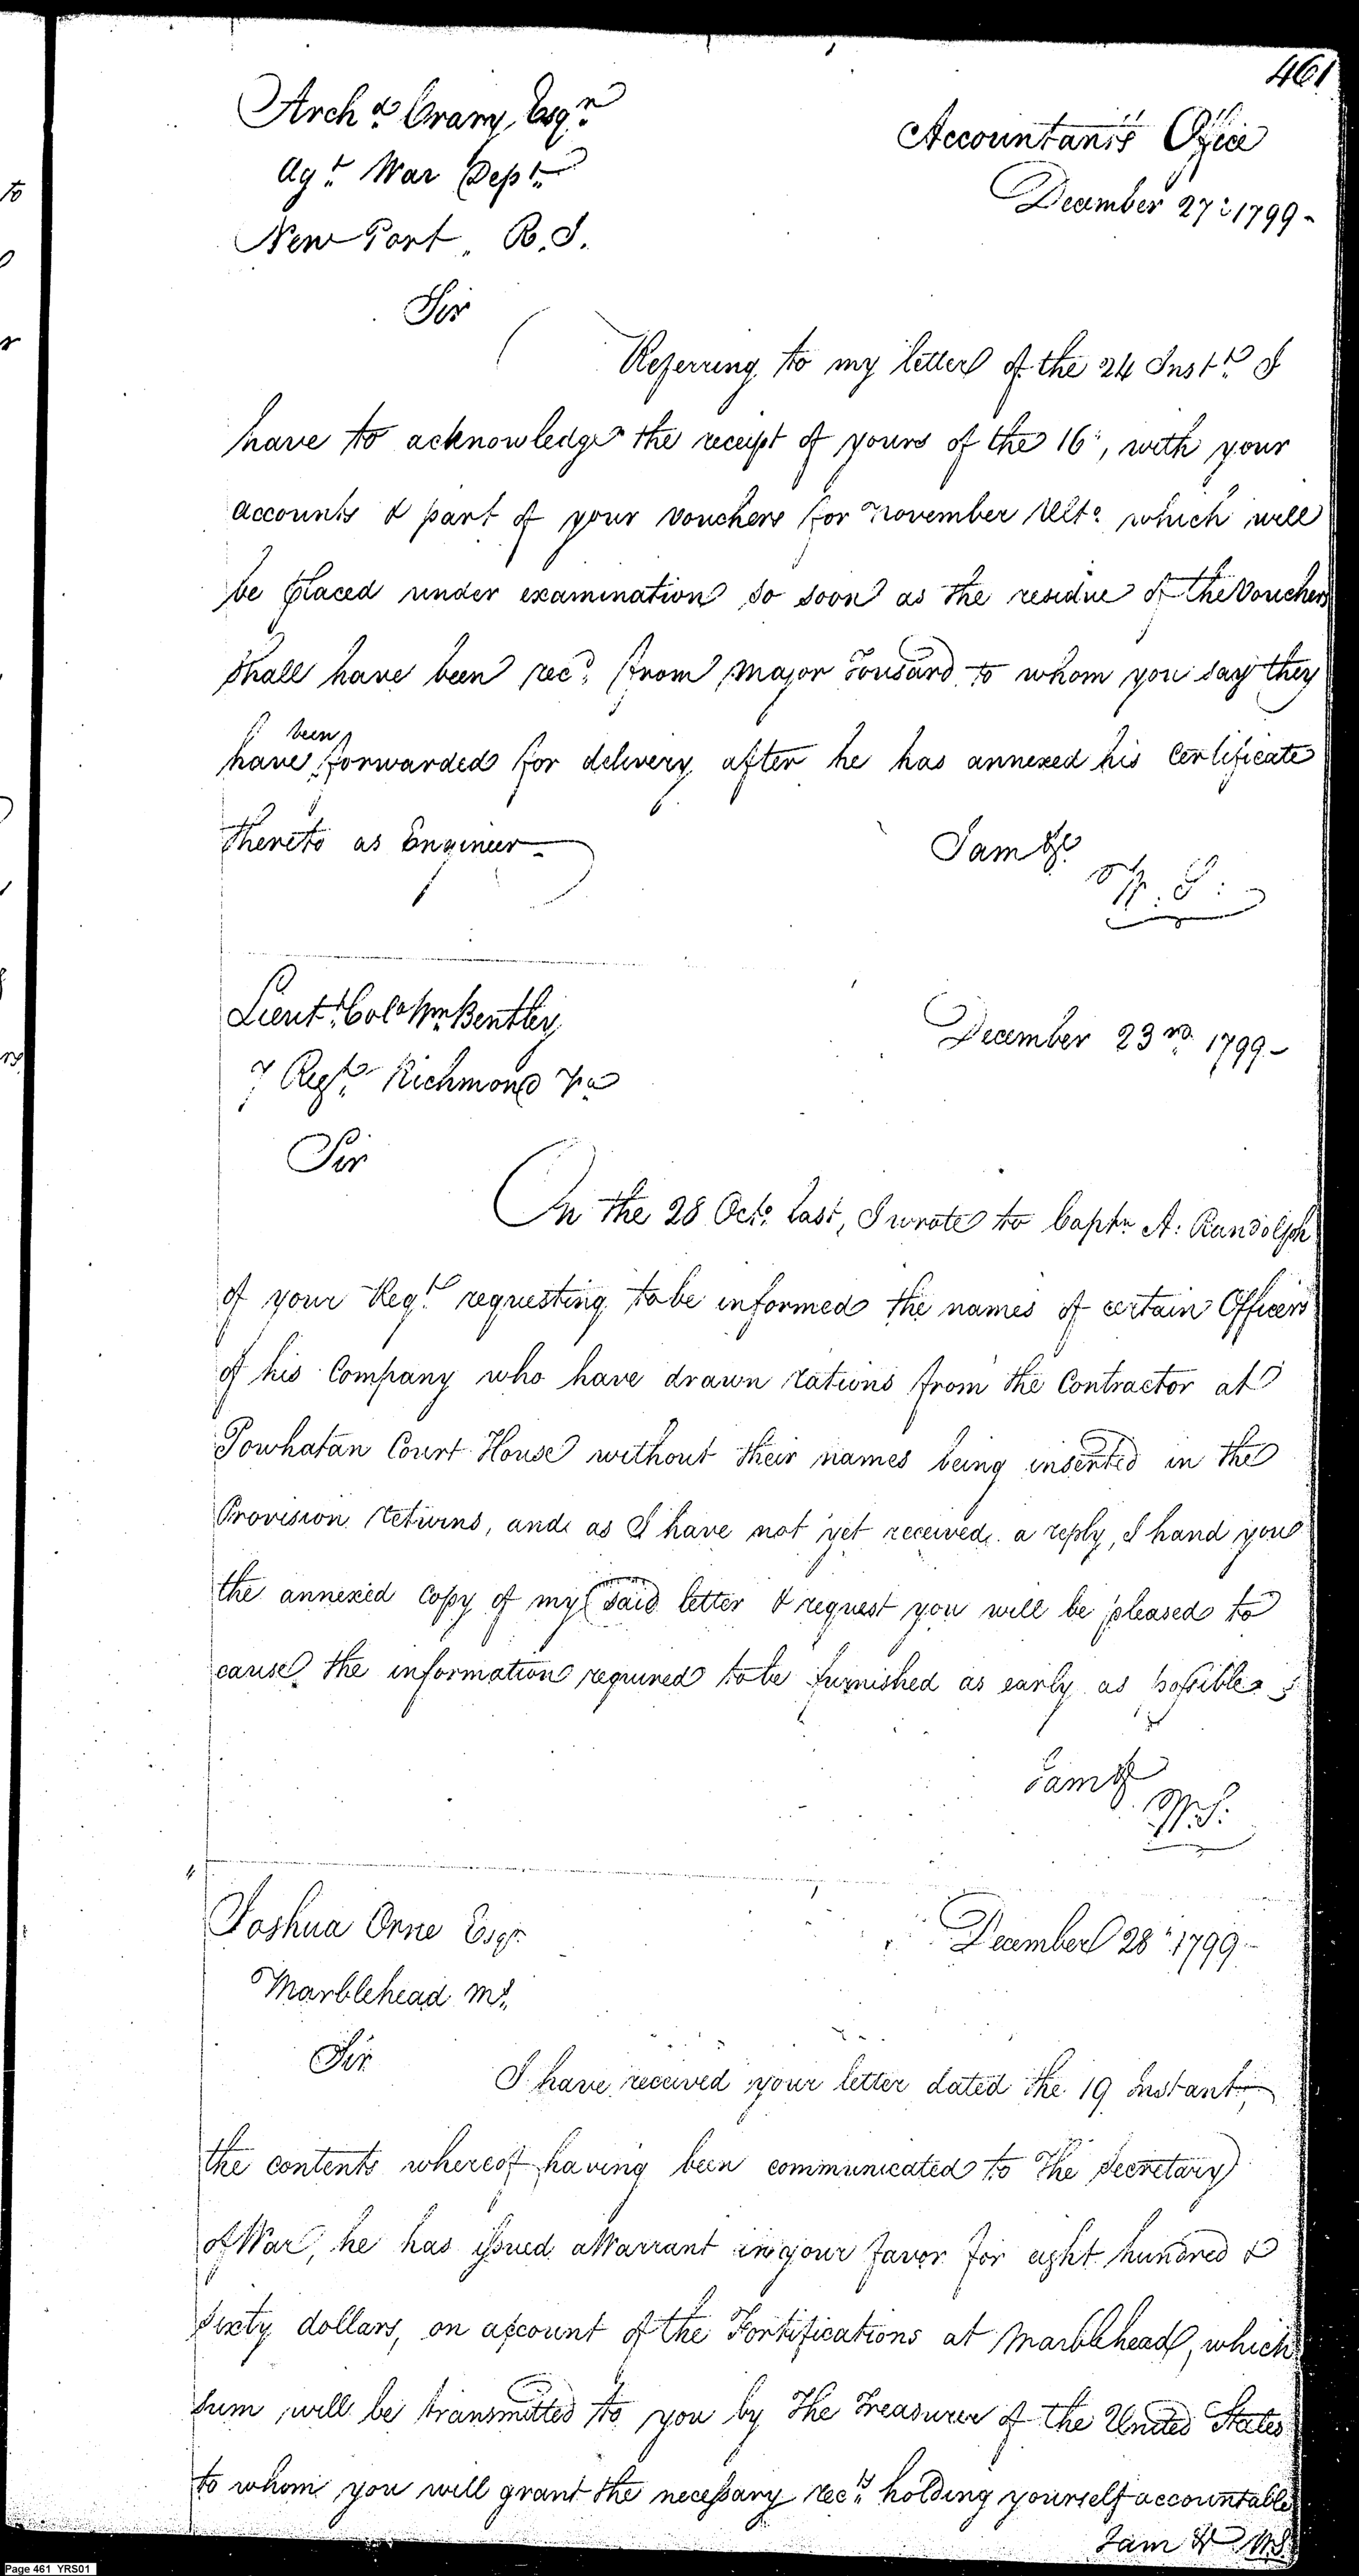 461
Archd. Crary, Esqr.
Agt. War Dept.
New Port. R.I.
Accountant's Office
December 27: 1799-
Sir
Referring to my letter of the 24 Instt. I
have to acknowledge the receipt of yours of the 16:, with your
accounts & part of your vouchers for November Ulto. which will
be placed under examination so soon as the residue of the Vouchers
shall have been recd. from Major Tousard to whom you say they
have been forwarded for delivery after he has annexed his Certificate
thereto as Engineer-
I am &c.
W. S:
Lieut. Colo. Wm. Bentley
7 Regt. Richmond Va
December 23rd. 1799-
Sir
On the 28 Octo. last, I wrote to Captn. A: Randolph
of your Regt. requesting to be informed the names of certain Officers
of his Company who have drawn rations from the Contractor at
Powhatan Court House without their names being inserted in the
Provision returns, and as I have not yet received a reply, I hand you
the annexed Copy of my said letter & request you will be pleased to
cause the information required to be furnished as early as possible
I am &
W. S.
Joshua Orne Esqr.
Marblehead Ms.
December 28: 1799-
Sir
I have received your letter dated the 19 Instant,
the contents whereof having been communicated to the Secretary
of War, he has issued a Warrant in your favor for eight hundred &
sixty dollars, on account of the Fortifications at Marblehead, which
sum will be transmitted to you by the Treasurer of the United States
to whom you will grant the necessary rects. holding yourself accountable
I am & W.S.
Page 461 YRS01